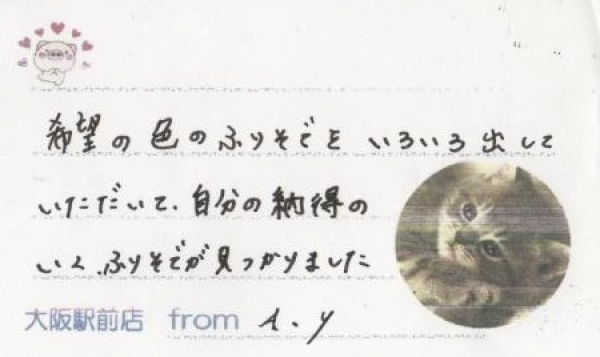 希望の色のふりそでを いろいろ出して
いただいて、自分の納得の
いく ふりそでが見つかりました
大阪駅前店 from A.Y